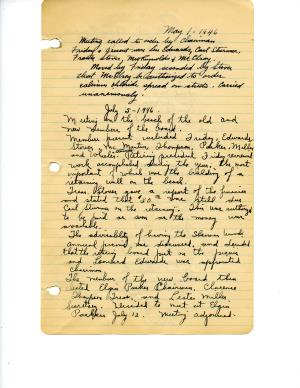 May 1, 1946
Meeting called to order by Chairman
Friday & present were Geo Edwards, Carl Sturmer,
Fraser Stover, Mrs Reynolds & McElroy
Moved by Friday seconded by Stover
that McElroy be authorized to order
calcium chloride spread on streets. Carried
unanimously.
July 5-1946.
Meeting on the beach of the old and
new members of the board.
Members present included Friday, Edwards
Stover, Thompson, Parker, Miller
and Retiring president Friday reviewed
work accomplished during the year, the most
important of which was the building of a
retaining wall on the beach.
Treas. Stover gave a report of the finances
and stated that $80.00 was still due
Carl Sturmer on the retaining. This was
to be paid as soon as the money was
available.
The advisability of having the
annual present was discussed, and decided
that the retiring board put on the
and Leonard Edwards was appointed
chairman.
The members of the new board then
elected Elgin Parker Chairman, Clarence
Thompson Treas. and Lester Miller
Secretary. Decided to meet at Elgin
Parkers July 12. Meeting adjourned.